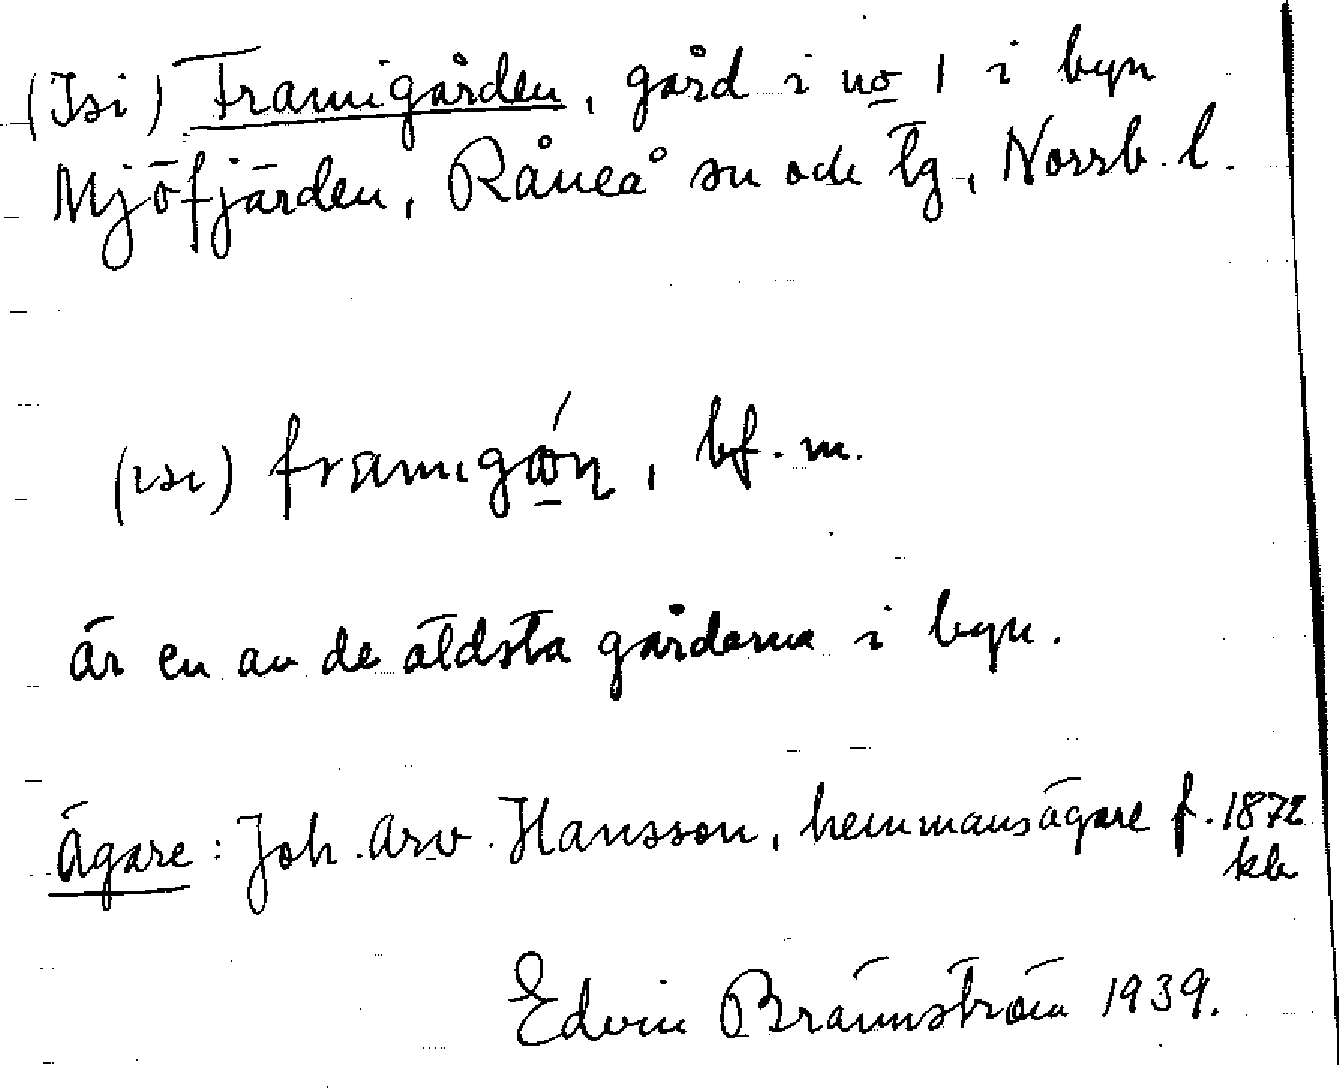 (Isi) Framigården, gård i no 1 i byn
Mjöfjärden, Råneå sn och tg, Norrb. l.
(ɩsɩ) framɩgɷ́ɳ, bf. m.
är en av de äldsta gårdarna i byn.
Ägare: Joh. Arv. Hansson, hemmansägare f. 1872
Edvin Brännström 1939.